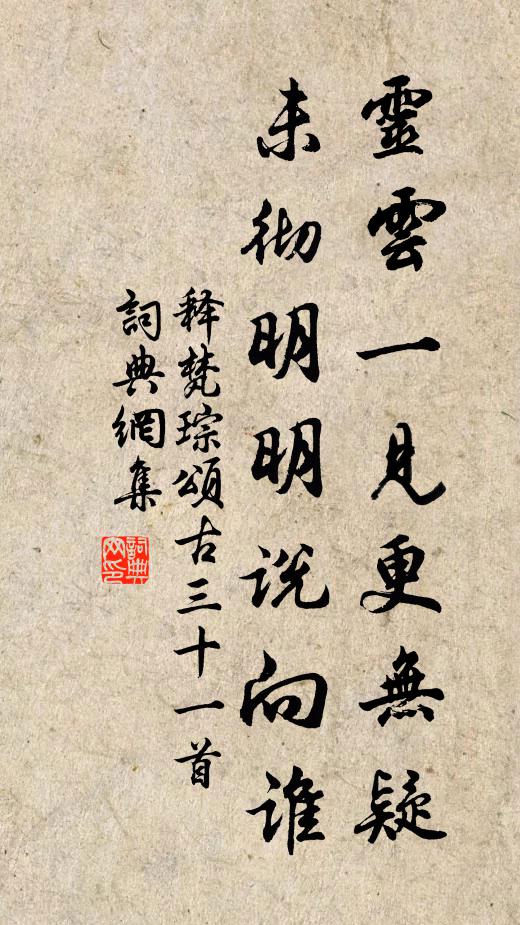 靈雲一見更無疑
未彻明明说向谁
释梵琮頌古三十一首
詞典網集
詞典网印